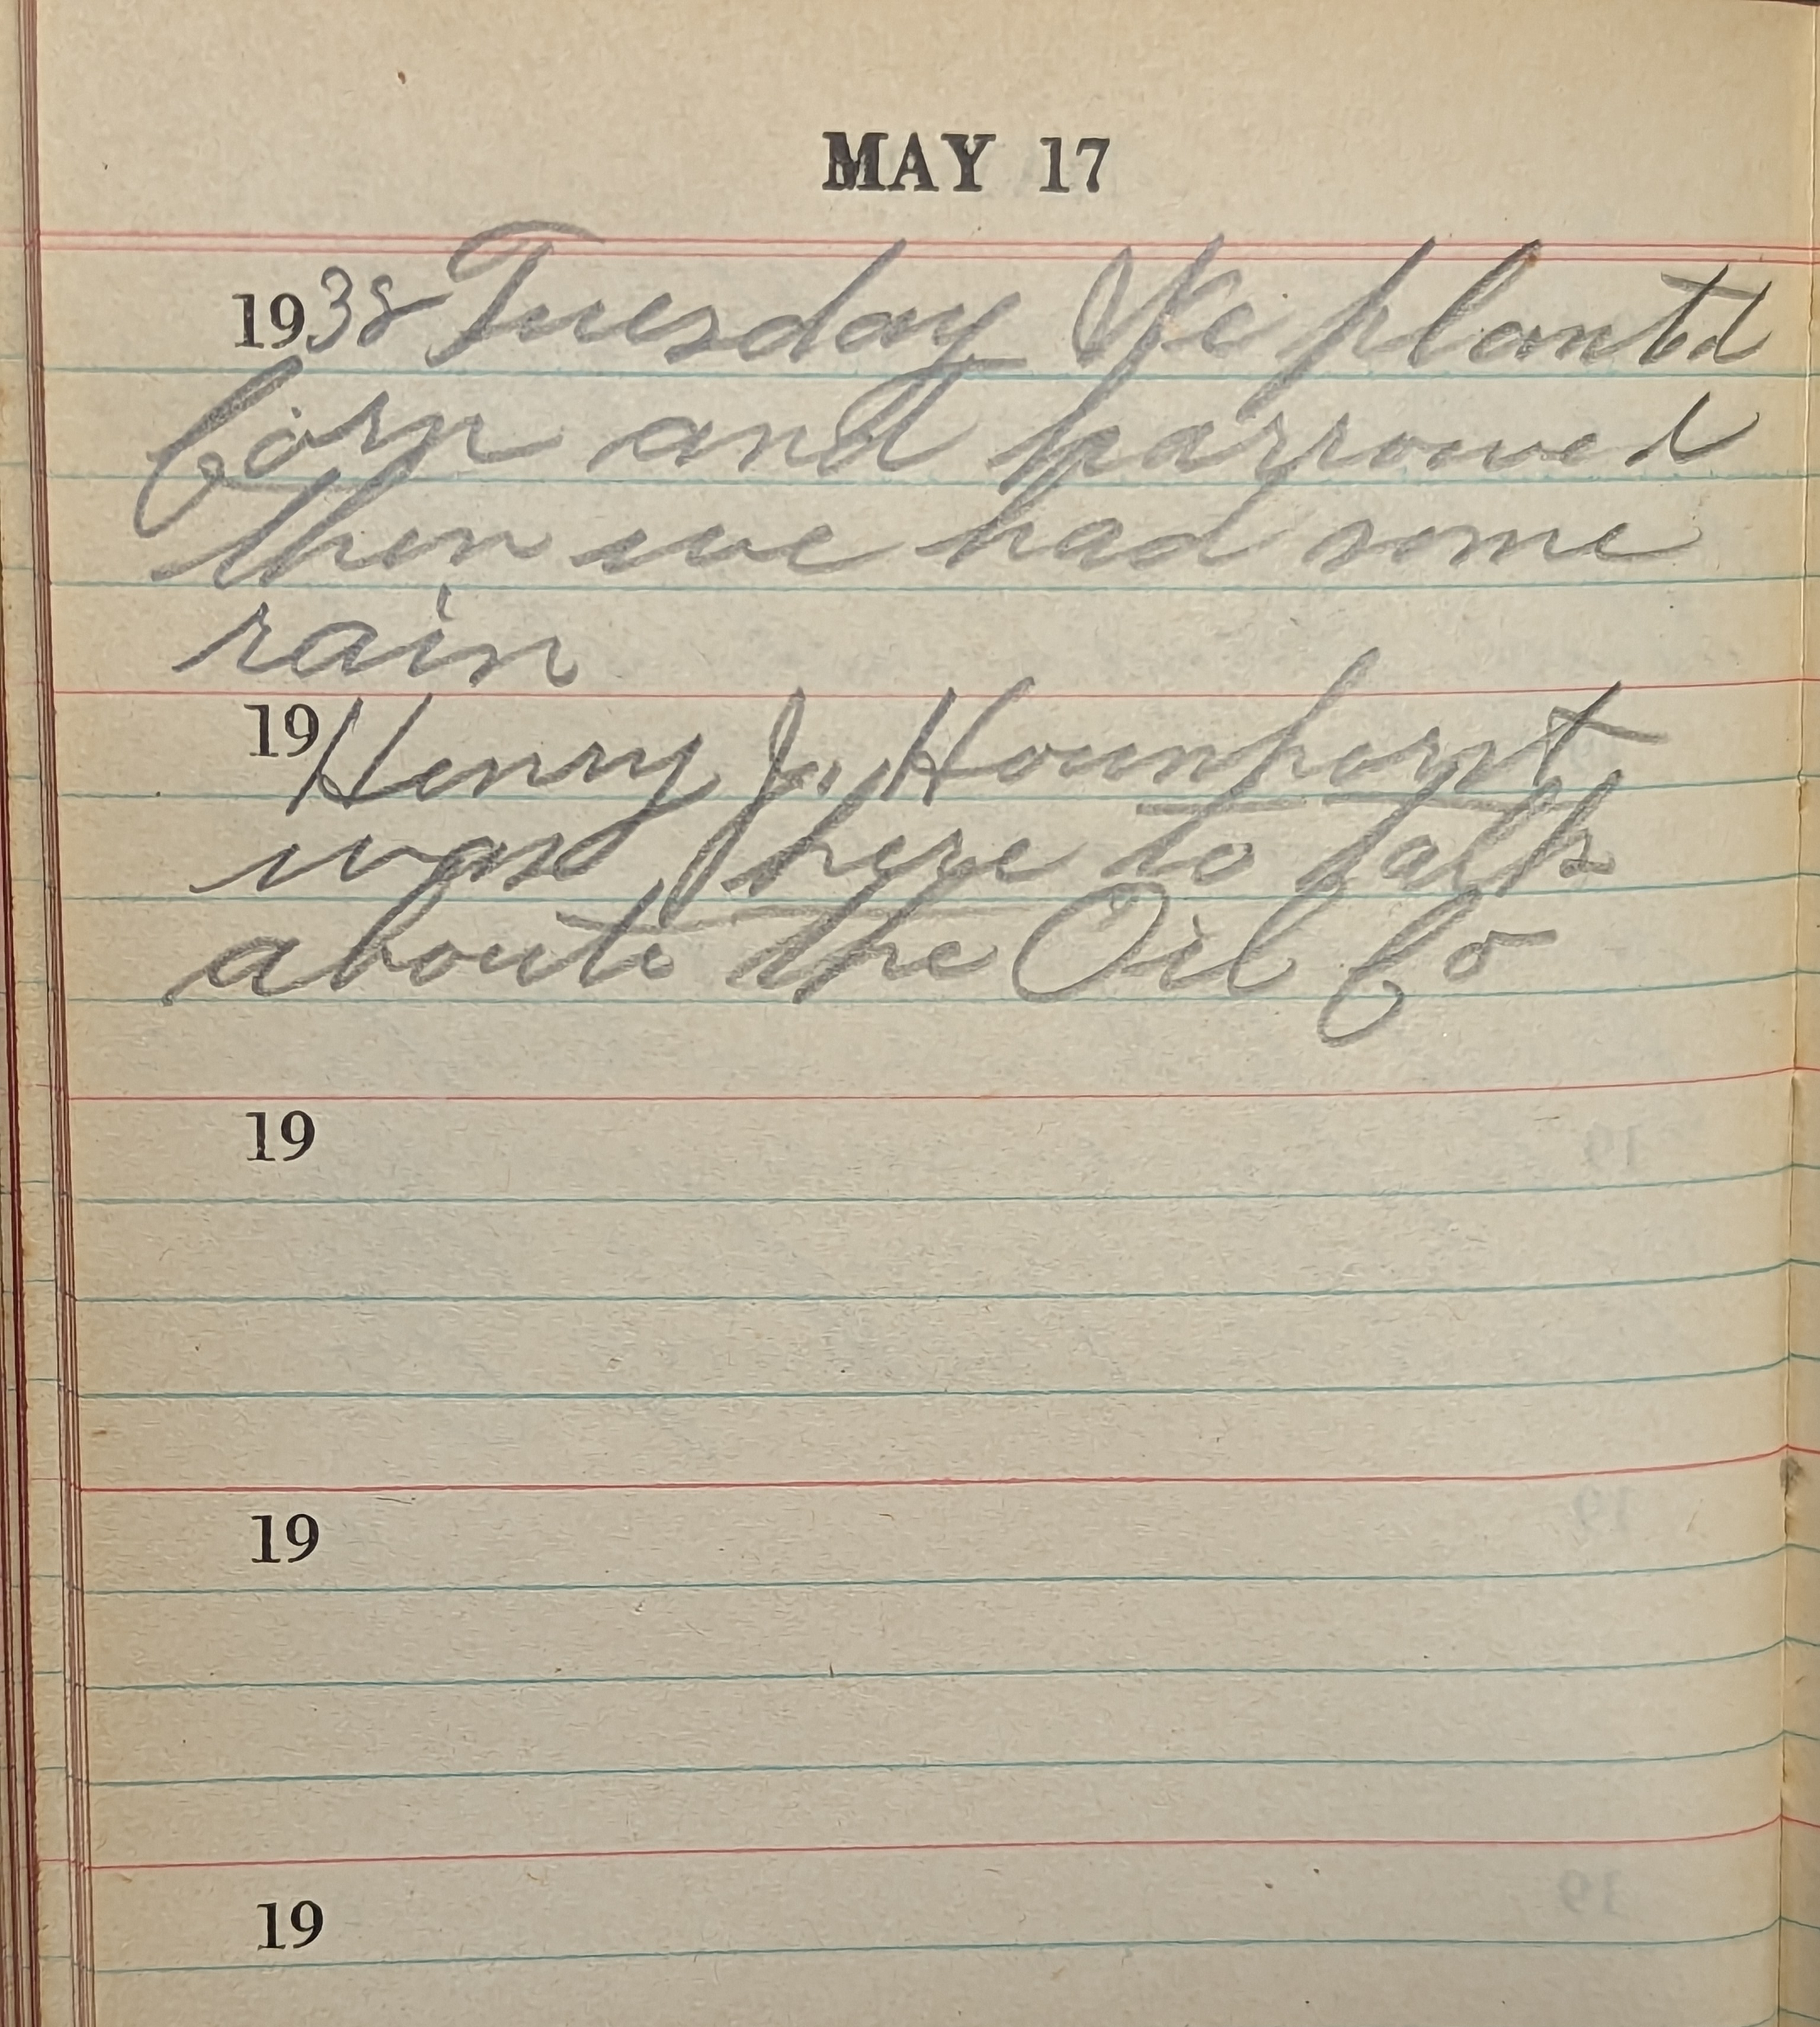 MAY 17
1938 Tuesday We planted
Corn and harrowed
then we had some
rain
19 Henry J. Hounhorst
was here to talk
about the Oil Co
19
19
19